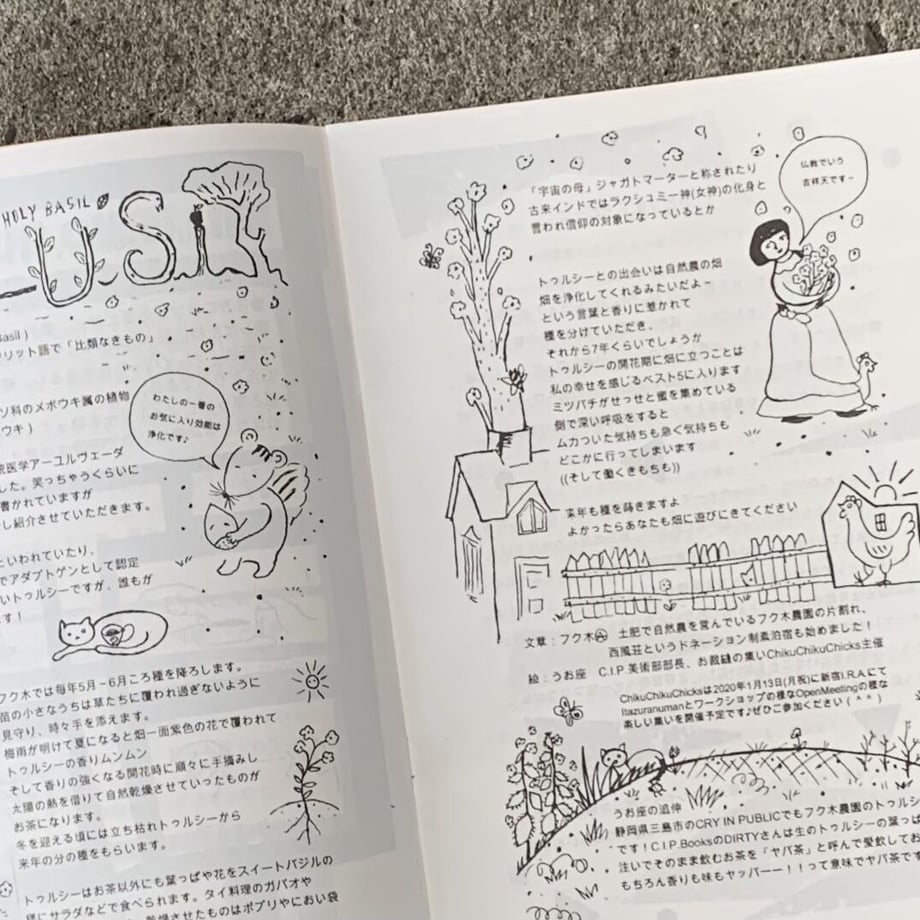 HOLY BASIL
U'SI
Basil )
クリット語で「比類なきもの」
ソ科のメボウキ属の植物
ウキ )
統医学アーユルヴェーダ
した。笑っちゃうくらいに
書かれていますが
し紹介させていただきます。
といわれていたり、
でアダプトゲンとして認定
いトゥルシーですが、誰もが
ます!
わたしの一番の
お気に入り効能は
浄化です♪
フク木では毎年5月~6月ころ種を降ろします。
苗の小さなうちは草たちに覆われ過ぎないように
見守り、時々手を添えます。
梅雨が明けて夏になると畑一面紫色の花で覆われて
トゥルシーの香りムンムン
そして香りの強くなる開花時に順々に手摘みし
太陽の熱を借りて自然乾燥させていったものが
お茶になります。
冬を迎える頃には立ち枯れトゥルシーから
来年の分の種をもらいます。
トゥルシーはお茶以外にも葉っぱや花をスイートバジルの
様にサラダなどで食べられます。タイ料理のガパオや
乾燥させたものはポプリやにおい袋
「宇宙の母」ジャガトマーターと称されたり
古来インドではラクシュミー神(女神)の化身と
言われ信仰の対象になっているとか
仏教でいう
吉祥天です~
トゥルシーとの出会いは自然農の畑
畑を浄化してくれるみたいだよ~
という言葉と香りに惹かれて
種を分けていただき、
それから7年くらいでしょうか
トゥルシーの開花期に畑に立つことは
私の幸せを感じるベスト5に入ります
ミツバチがせっせと蜜を集めている
側で深い呼吸をすると
ムカついた気持ちも急ぐ気持ちも
どこかに行ってしまいます
((そして働くきもちも))
来年も種を蒔きますよ
よかったらあなたも畑に遊びにきてください
文章:フク木 土肥で自然農を営んでいるフク木農園の片割れ、
西風荘というドネーション制素泊宿も始めました!
絵:うお座 C.I.P.美術部部長、お裁縫の集いChikuChikuChicks主催
ChikuChikuChicksは2020年1月13日(月祝)に新宿I.R.A.にて
Itazuranumanとワークショップの様なOpenMeetingの様な
楽しい集いを開催予定です♪ぜひご参加ください ( ^ ^ )
うお座の追伸
静岡県三島市のCRY IN PUBLICでもフク木農園のトゥルシ
です!C.I.P.BooksのDIRTYさんは生のトゥルシーの葉っぱ
注いでそのまま飲むお茶を「ヤバ茶」と呼んで愛飲してお
もちろん香りも味もヤッバーー!!って意味でヤバ茶です